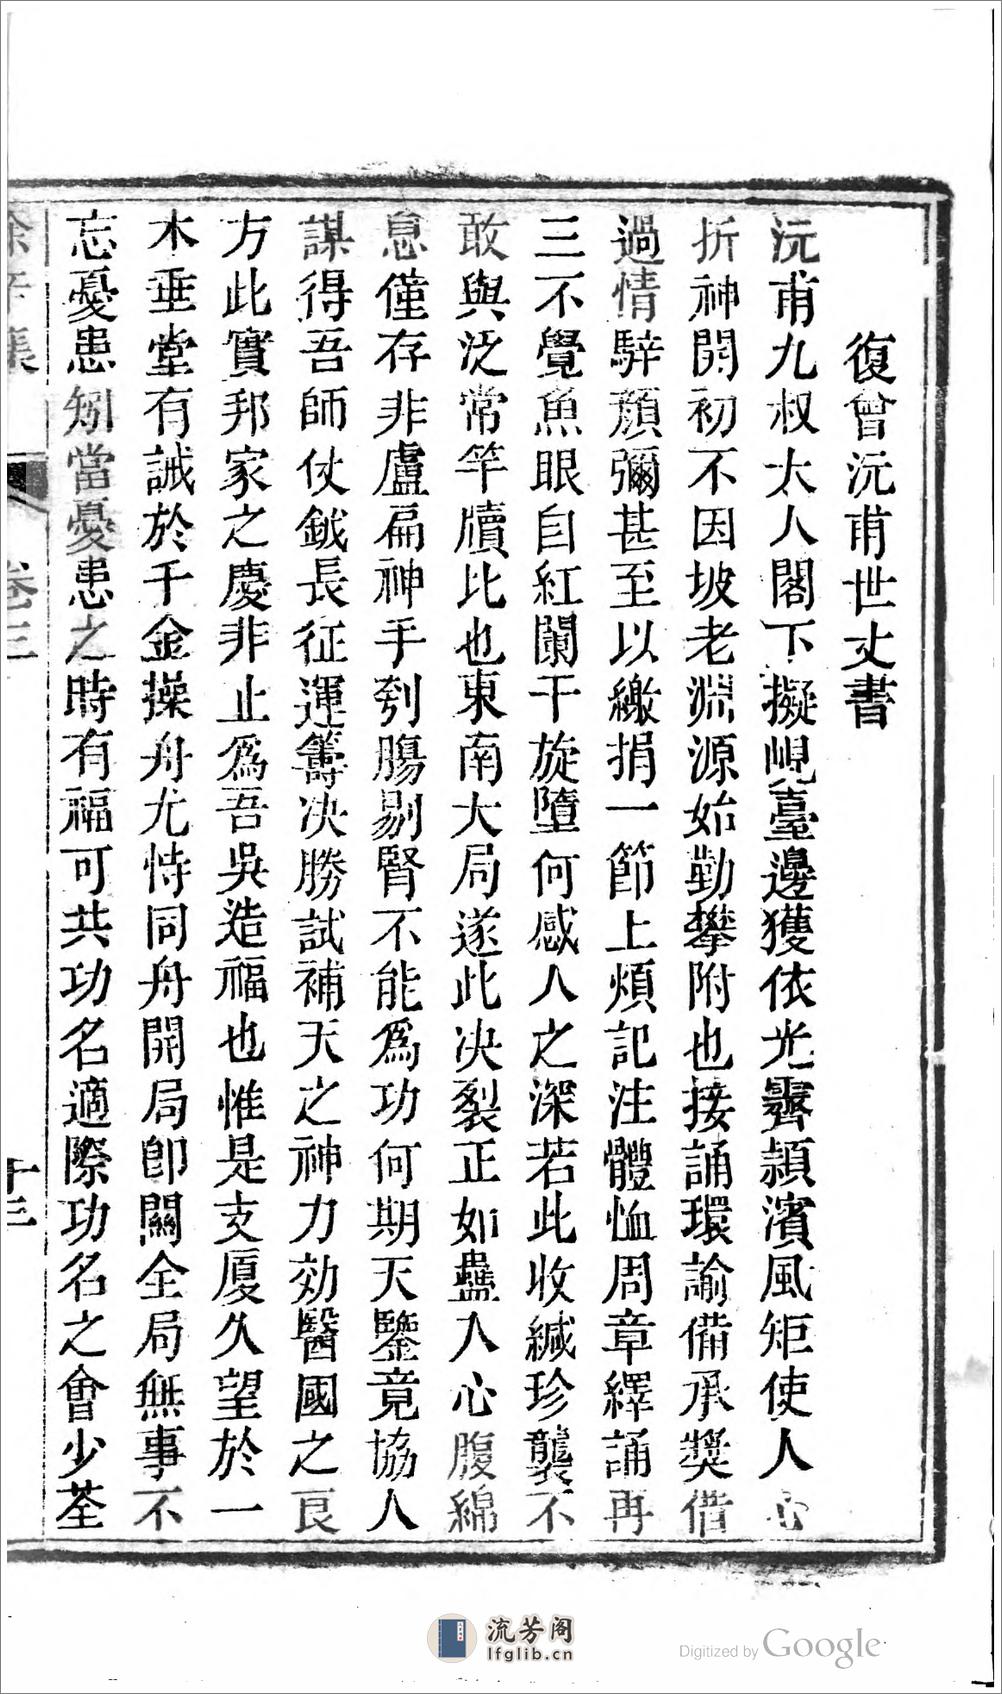 復曾沅甫世丈書
沅甫九叔大人閣下擬峴臺邊獲依光霽潁濱風矩使人心
折神開初不因坡老淵源始勤攀附也接誦環諭備承獎借
過情騂顏彌甚至以繳捐一節上煩記注體恤周章繹誦再
三不覺魚眼自紅闌干旋墮何感人之深若此收緘珍襲不
敢與泛常竿牘比也東南大局遂此决裂正如蠱入心腹綿
息僅存非盧扁神手刳腸剔腎不能爲功何期天鑒竟協人
謀得吾師仗鉞長征運籌决勝試補天之神力効醫國之良
方此實邦家之慶非止爲吾吳造福也惟是支厦久望於一
木垂堂有誡於千金操舟尤恃同舟開局卽關全局無事不
忘憂患矧當憂患之時有福可共功名適際功名之會少荃
卷三
十三
流芳阁
lfglib.cn
Digitized by Google